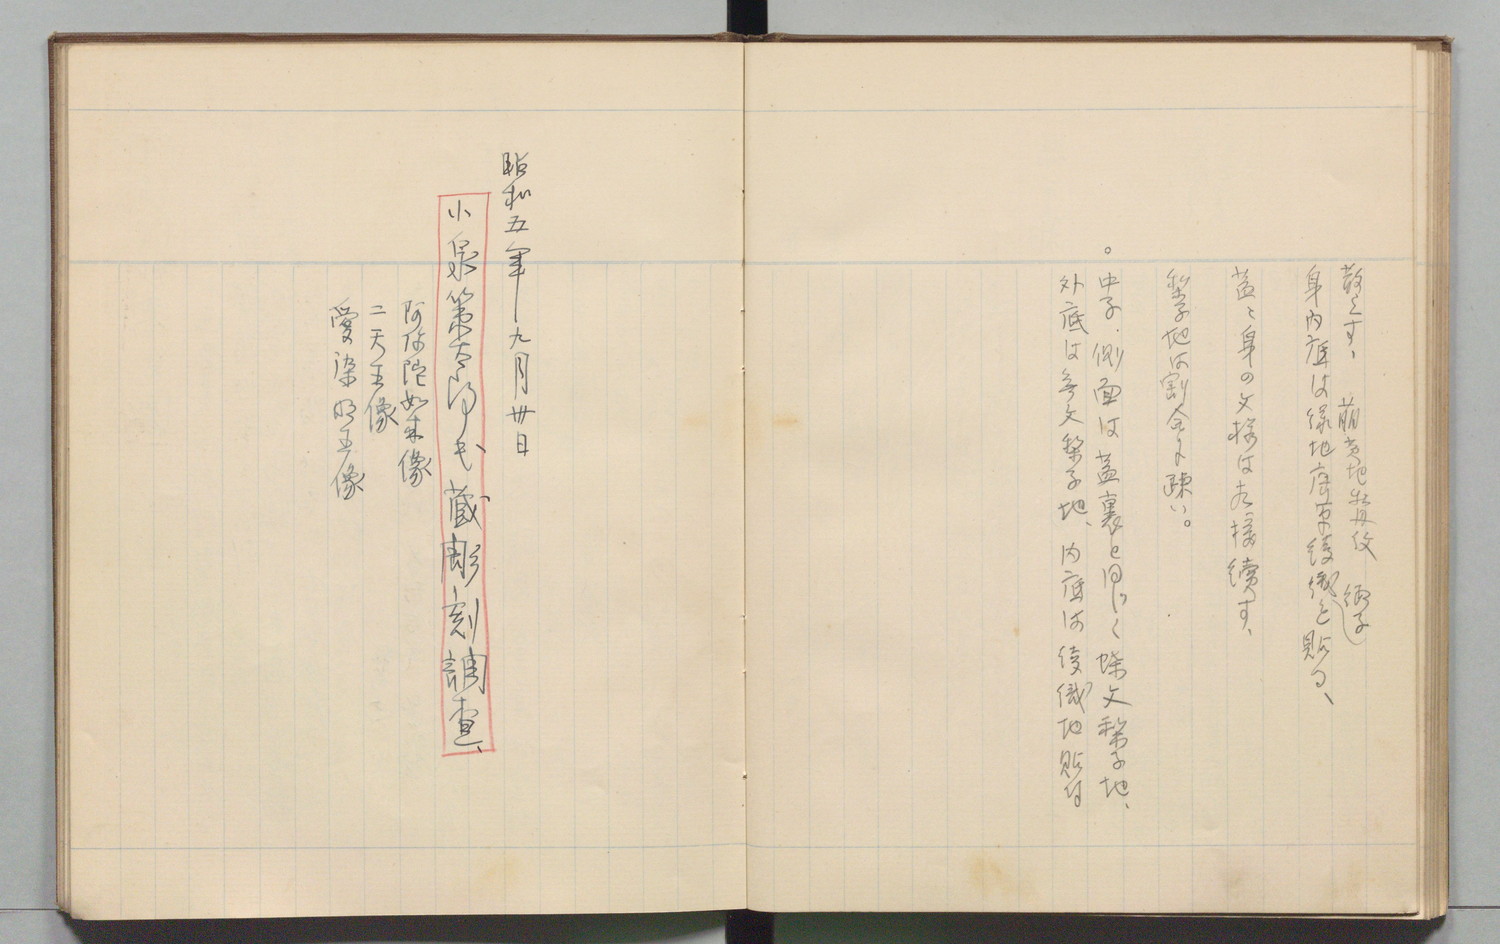 散らす、 萌黄地牡丹紋 緞子
身内底は緑地唐草綾織を貼る、
蓋と身の文様は相接続す、
梨子地は割合に疎い。
。中子、側面は蓋裏と同じく蝶文梨子地、
外底は無文梨子地、内底は綾織地貼付
昭和五年九月廿日
小泉策太郎氏蔵彫刻調査、
阿弥陀如来像
二天王像
愛染明王像